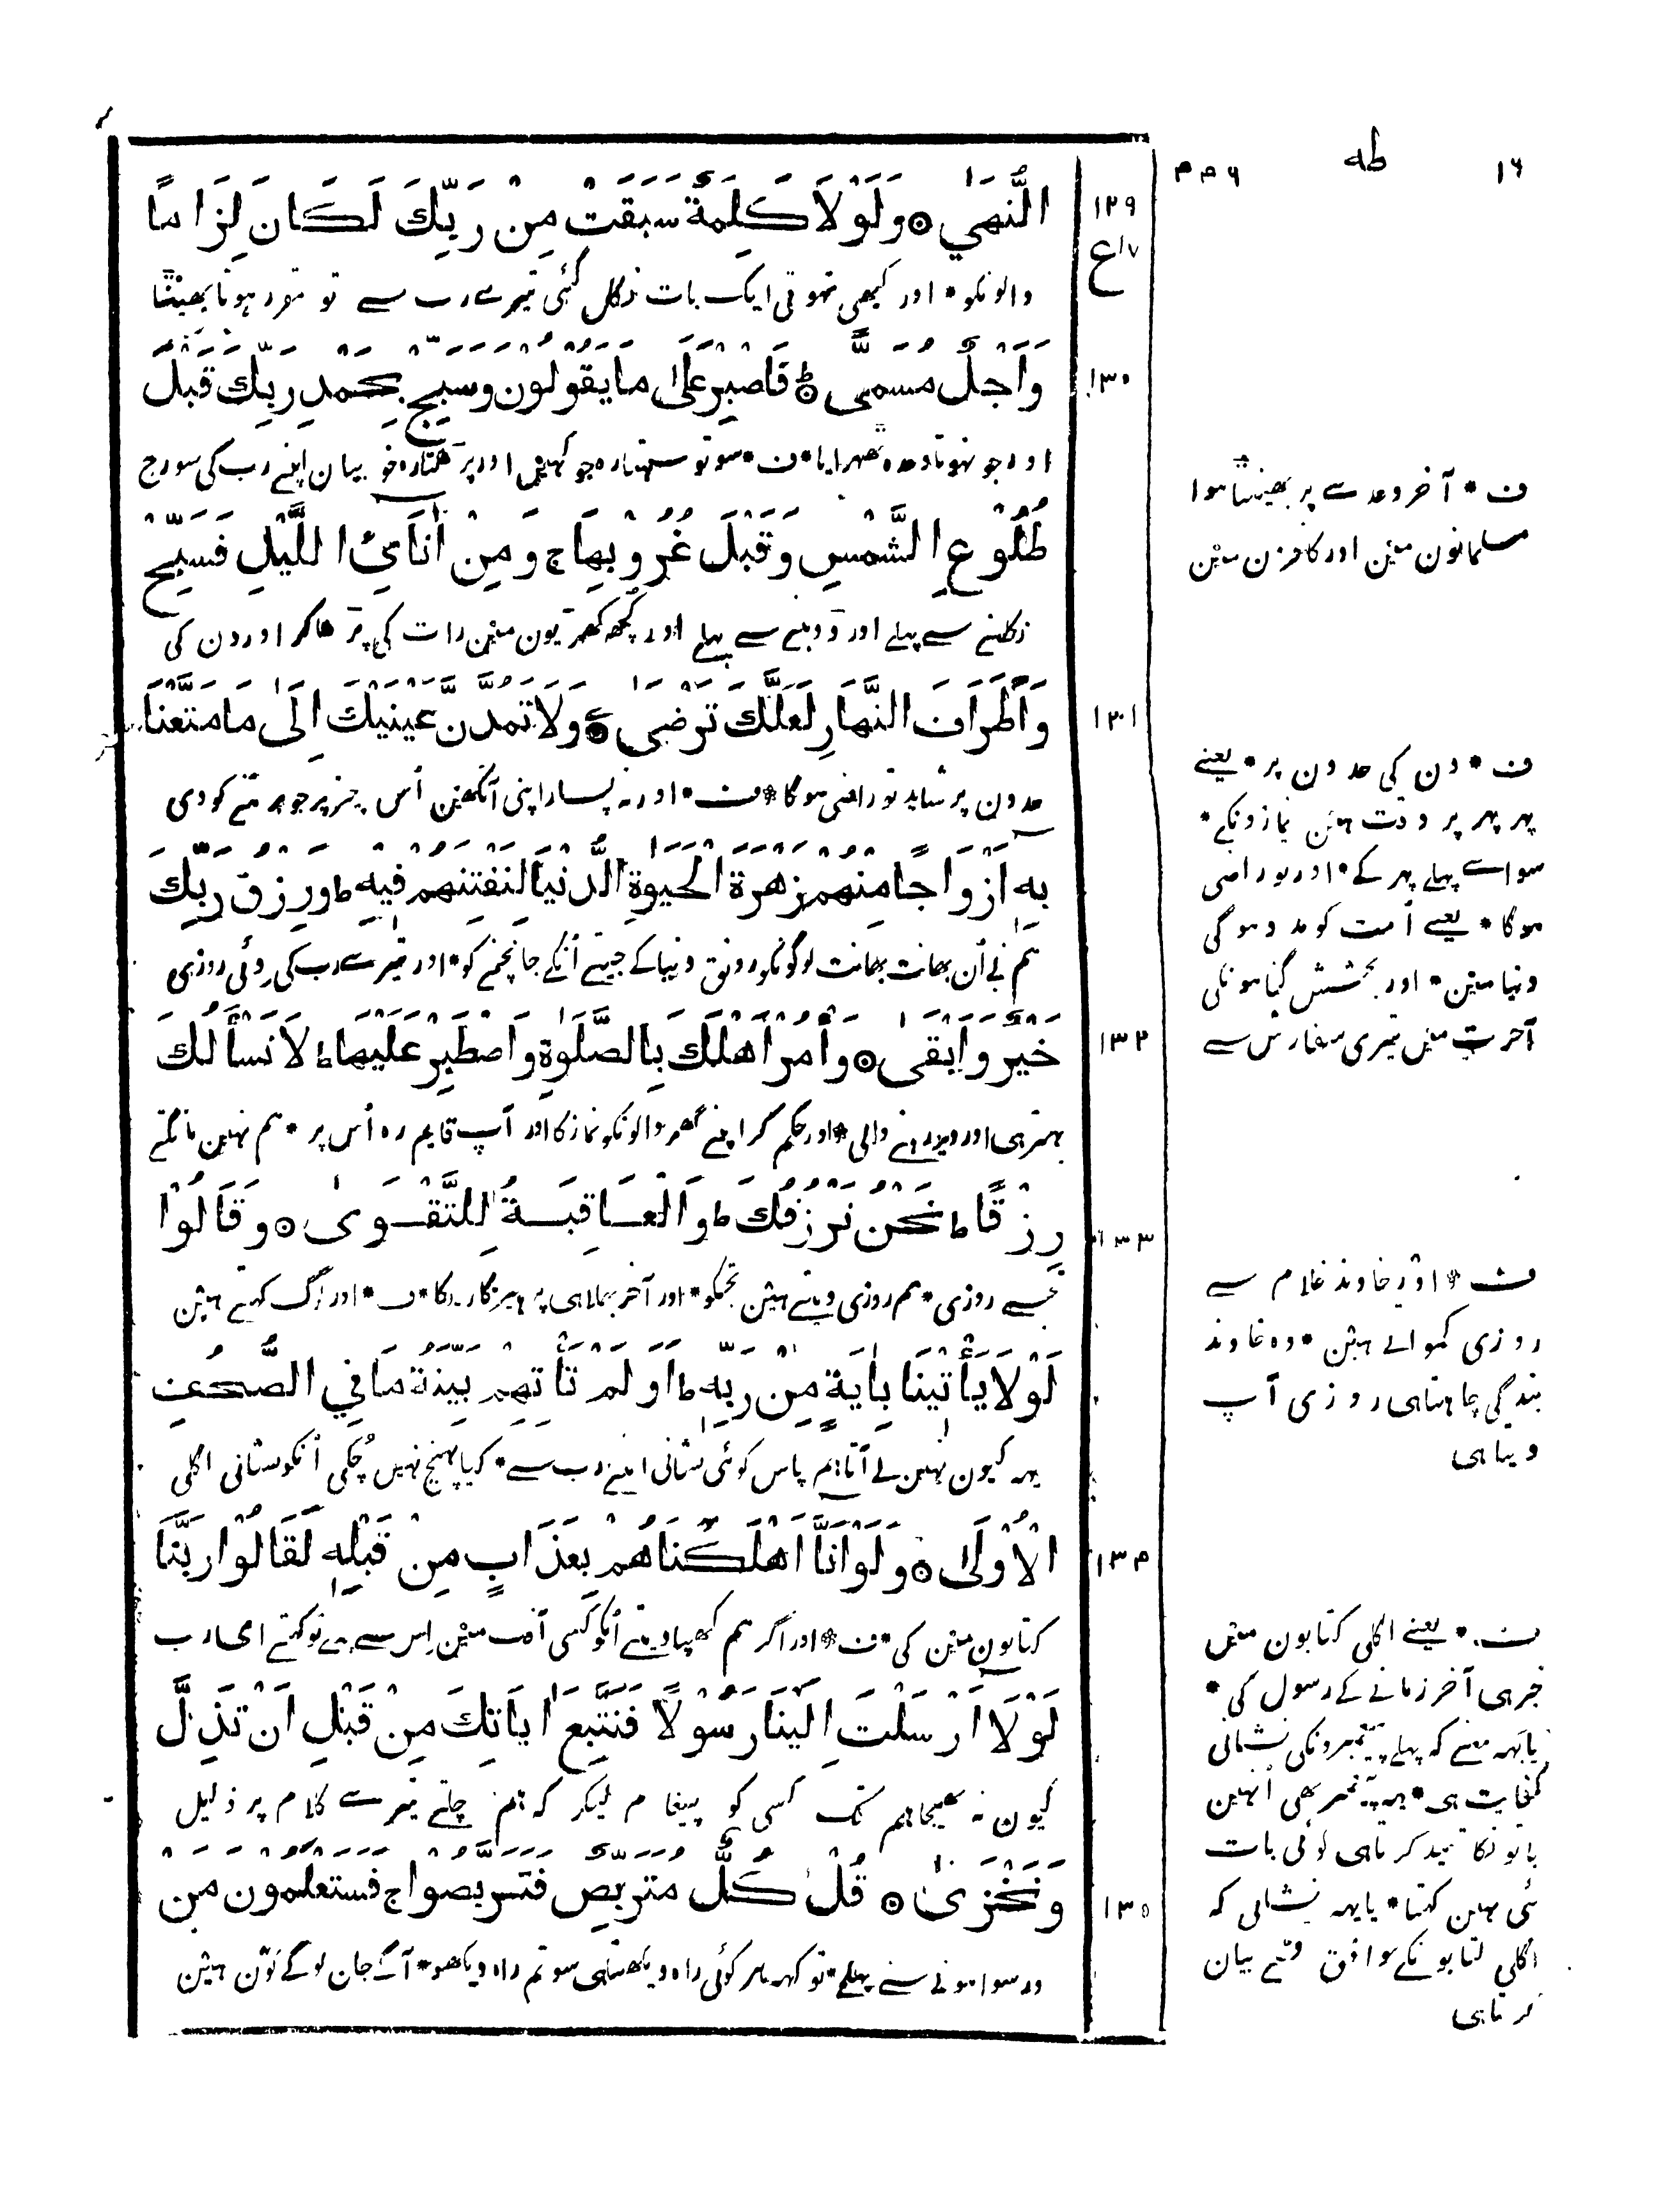 ١٦ طه ۴۴۶
النُّهٰي ۝ وَلَوْلَا كَلِمَةٌ سَبَقَتْ مِنْ رَبِّكَ لَكَانَ لِزَامًا
١٢٩
ع
والونکو * اور کبھی نہوتی ایک بات نکل گئی تیرے رب سے تو مقرر ہوتا بھینٹا
وَأَجَلٌ مُسَمًّى ۝ فَاصْبِرْ عَلٰى مَا يَقُولُونَ وَسَبِّحْ بِحَمْدِ رَبِّكَ قَبْلَ
١٣٠
اور جو نہوتا وعدہ ٹھہرایا * ف * سو تو سہتا رہ جو کہین اور پڑھتا رہ خوبیان اپنے رب کی سورج
طُلُوْعِ الشَّمْسِ وَقَبْلَ غُرُوْبِهَا ج وَمِنْ اٰنَائِ الَّيْلِ فَسَبِّحْ
نکلنے سے پہلے اور ڈوبنے سے پہلے اور کچھ گھڑیون مین رات کی پڑھا کر اور دن کی
وَأَطْرَافَ النَّهَارِ لَعَلَّكَ تَرْضٰى ۝ وَلَا تَمُدَّنَّ عَيْنَيْكَ اِلٰى مَا مَتَّعْنَا
١٣١
حدون پر شاید تو راضی ہوگا * ف * اور نہ پسار اپنی آنکھین اُس چیز پر جو برتنے کو دی
بِهٖ اَزْوَاجًا مِنْهُمْ زَهْرَةَ الْحَيٰوةِ الدُّنْيَا لِنَفْتِنَهُمْ فِيْهِ ط وَرِزْقُ رَبِّكَ
ہم نے اُن بھانت بھانت لوگونکو رونق دنیا کے جیتے اُنکے جانچنے کو * اور تیرے رب کی دی روزی
خَيْرٌ وَّاَبْقٰى ۝ وَأْمُرْ اَهْلَكَ بِالصَّلٰوةِ وَاصْطَبِرْ عَلَيْهَا ط لَا نَسْأَلُكَ
١٣٢
بہتر ہی اور دیر رہنے والی * اور حکم کر اپنے گھر والونکو نماز کا اور آپ قایم رہ اُس پر * ہم نہین مانگتے
رِزْقًا ط نَحْنُ نَرْزُقُكَ ط وَالْعَاقِبَةُ لِلتَّقْوٰى ۝ وَقَالُوْا
١٣٣
تجھسے روزی * ہم روزی دیتے ہین تجھکو * اور آخر بھلا ہی پرہیزگاری کا * ف * اور لوگ کہتے ہین
لَوْلَا يَأْتِيْنَا بِاٰيَةٍ مِّنْ رَبِّهٖ ط اَوَلَمْ تَأْتِهِمْ بَيِّنَةُ مَا فِي الصُّحُفِ
یہہ کیون نہین لے آتا ہم پاس کوئی نشانی اپنے رب سے * کیا پہنچ نہین چُکی اُنکو نشانی اگلی
الْاُوْلٰى ۝ وَلَوْ اَنَّا اَهْلَكْنَاهُمْ بِعَذَابٍ مِنْ قَبْلِهٖ لَقَالُوْا رَبَّنَا
١٣۴
کتابون مین کی * ف * اور اگر ہم کھپا دیتے اُنکو کسی آفت مین اِس سے پہلے تو کہتے ای رب
لَوْلَا اَرْسَلْتَ اِلَيْنَا رَسُوْلًا فَنَتَّبِعَ اٰيَاتِكَ مِنْ قَبْلِ اَنْ نَذِلَّ
کیون نہ بھیجا ہم تک کسی کو پیغام لیکر کہ ہم چلتے تیرے کلام پر ذلیل
وَنَخْزٰى ۝ قُلْ كُلٌّ مُتَرَبِّصٌ فَتَرَبَّصُوْا ج فَسَتَعْلَمُوْنَ مَنْ
١٣٥
و رسوا ہونے سے پہلے * تو کہہ ہر کوئی راہ دیکھتا ہی سو تم راہ دیکھو * آگے جان لوگے کون ہین
ف * آخر وعدے پر بھینٹا ہوا
مسلمانون مین اور کافرون مین
ف * دن کی حدون پر * یعنے
پہر پہر پر وقت ہین نمازونکے *
سواے پہلے پہر کے * اور تو راضی
ہوگا * یعنے اُمت کو مدد ہوگی
دنیا مین * اور بخشش گناہونکی
آخرت مین تیری سفارش سے
ف * اور خاوند غلام سے
روزی کمواتے ہین * وہ خاوند
بندگی چاہتا ہی روزی آپ
دیتا ہی
ف * یعنے اگلی کتابون مین
خبر ہی آخر زمانے کے رسول کی *
یا یہہ معنے کہ پہلے پیغمبرونکی نشانی
کفایت ہی * یہہ پیغمبر بھی اُنہین
باتونکا تقید کرتا ہی کوئی بات
نئی نہین کہتا * یا یہہ نشانی کہ
اگلی کتابونکے موافق قصے بیان
کرتا ہی